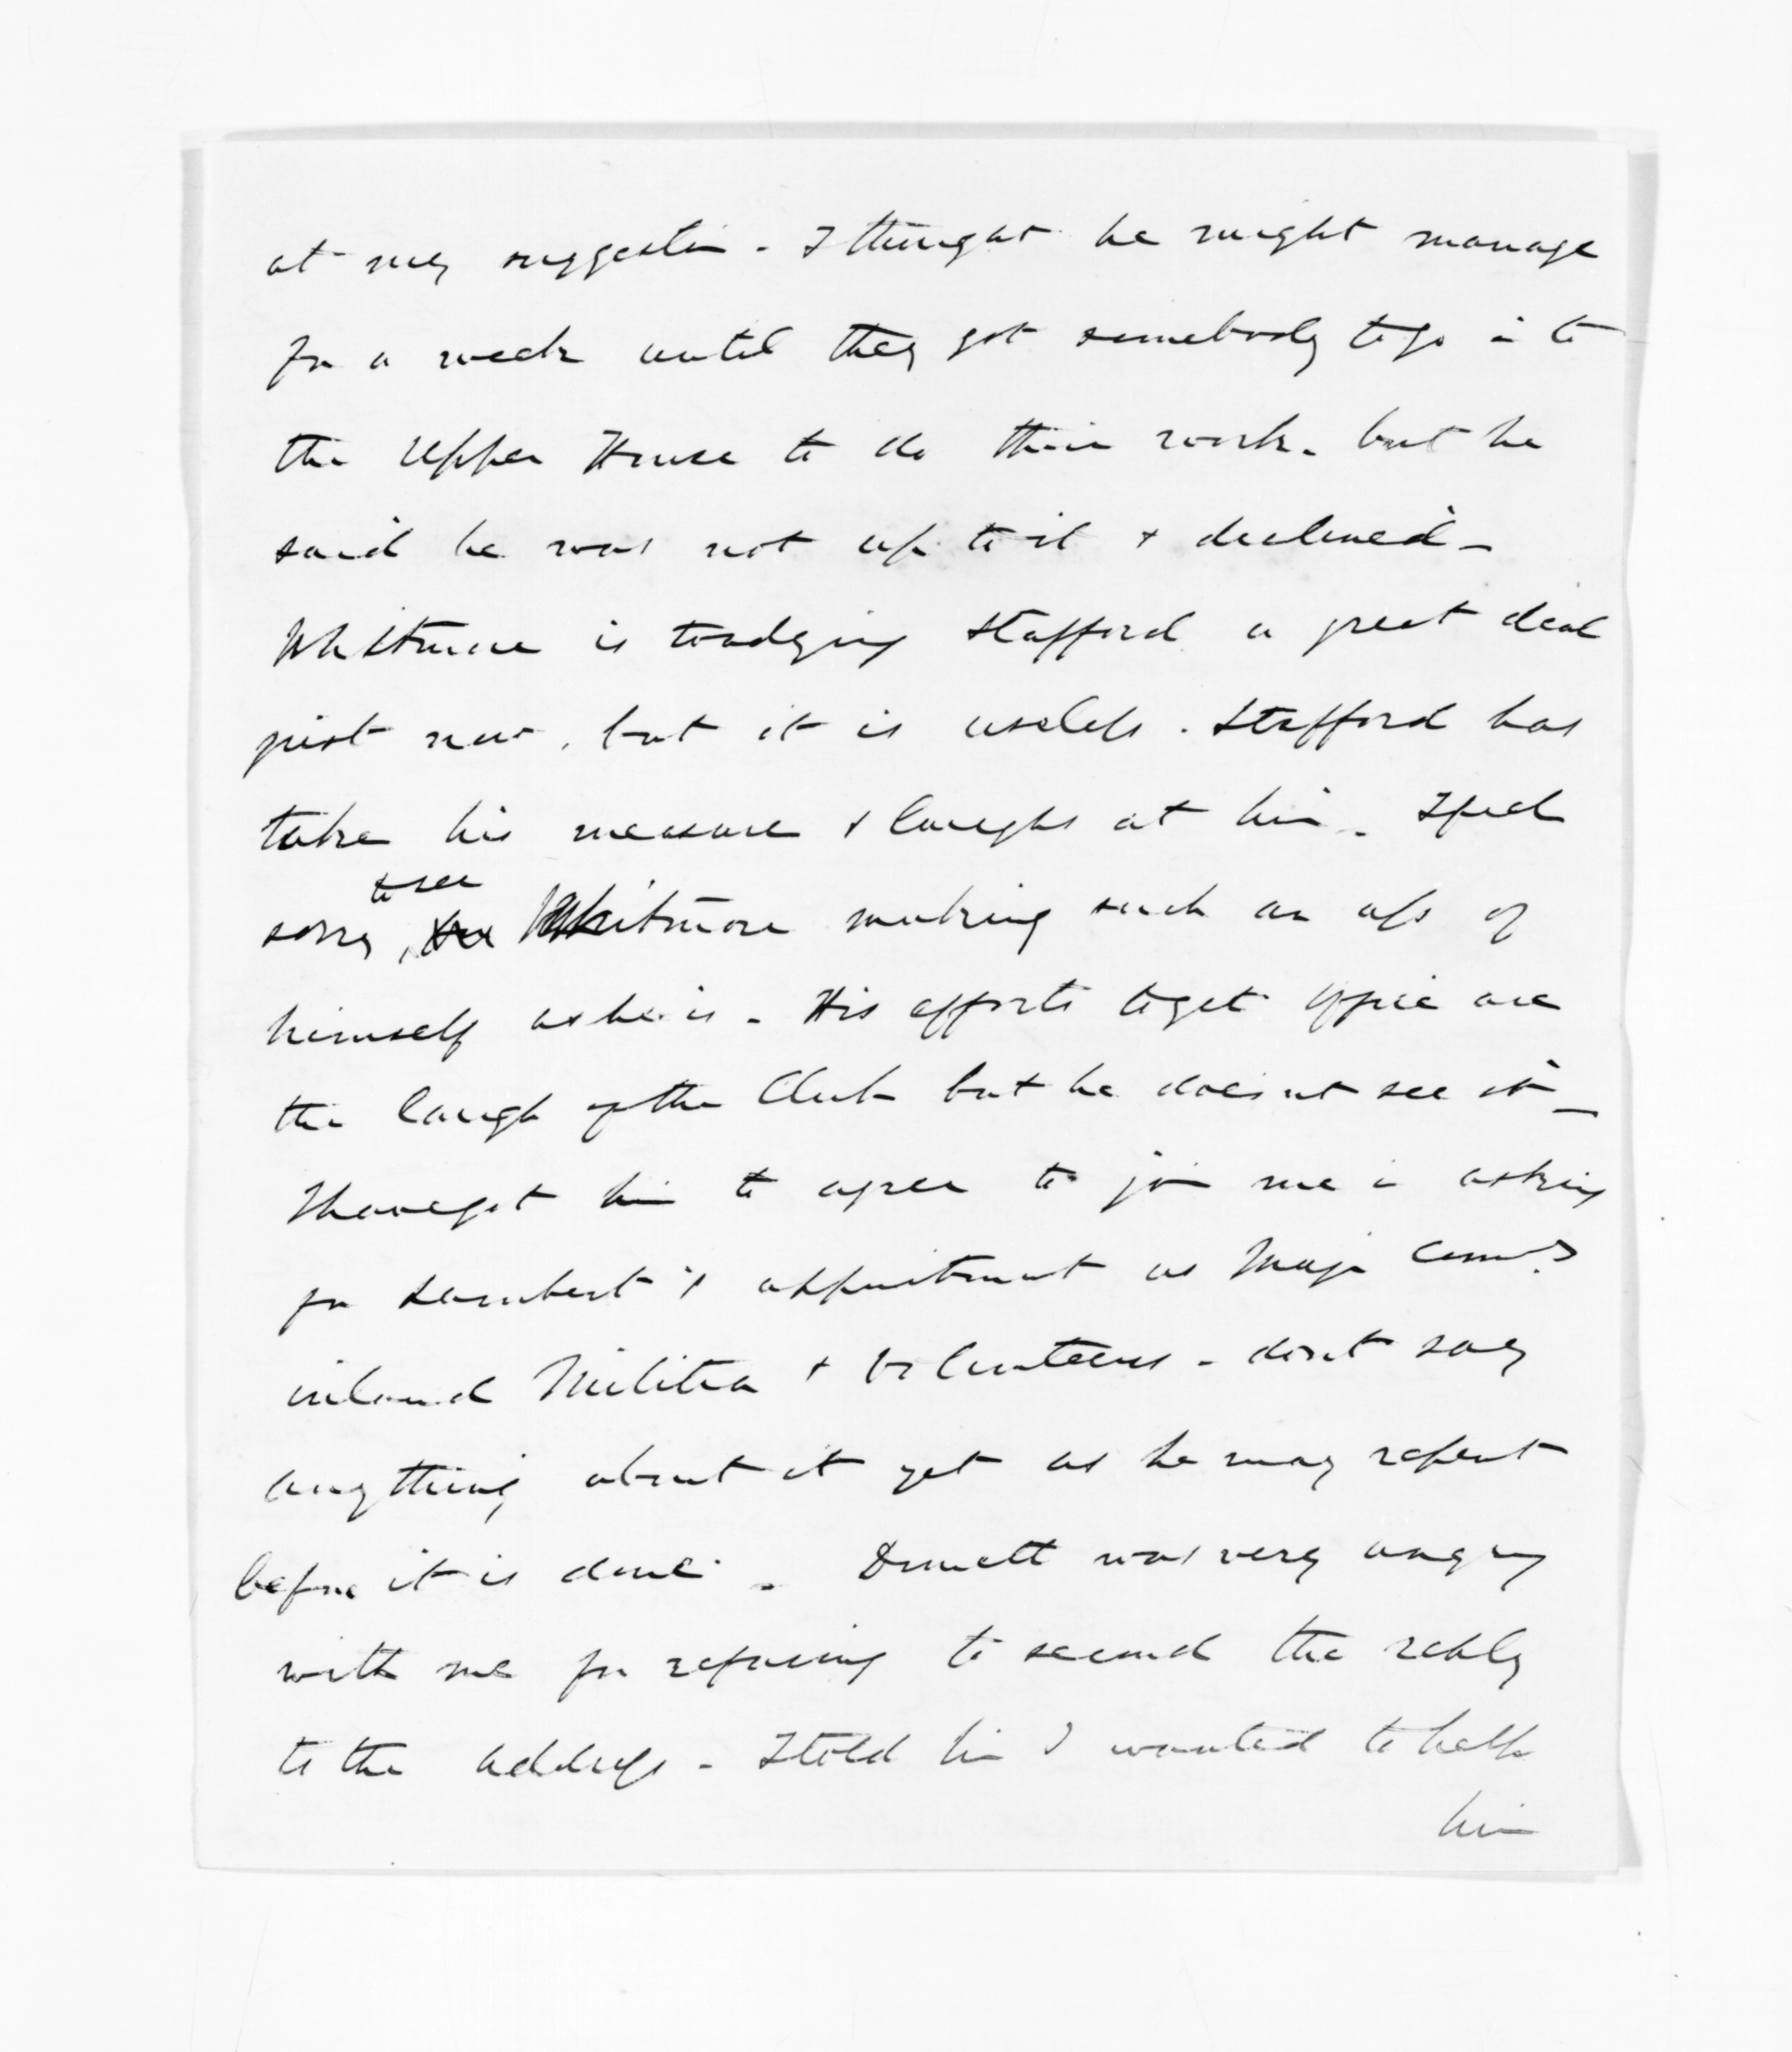 at my suggestion - I thought he might manage
for a week until they got somebody to go into
the Upper House to do their work. but he
said he was not up to it & declined -
Whitmore is toadying Stafford a great deal
just now, but it is useless. Stafford has
taken his measure & laughs at him. I feel
sorry to see Whitmore making such an ass of
himself as he is - His efforts to get office are
the laugh of the Club but he does not see it -
I have got him to agree to join me in asking
for Lambert's appointment as Major Comg
inland Militia & Volunteers - dont say
anything about it yet as he may repent
before it is done. - Domett was very angry
with me for refusing to second the reply
to the address - I told him I wanted to help
him